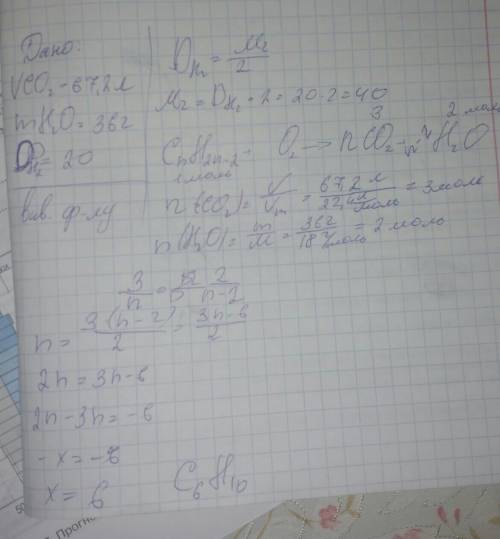 Дано:
VCO₂ - 67,2 л
mH₂O = 36 г
D H₂ = 20
вив. ф-лу
D H₂ = Mг / 2
Mг = D H₂ · 2 = 20 · 2 = 40
3 2 моль
CₙH₂ₙ₋₂ - O₂ → nCO₂ H₂O
1 моль
n(CO₂) = V / Vm = 67,2 л / 22,4 л/моль = 3 моль
n(H₂O) = m / M = 36 г / 18 г/моль = 2 моль
3 / n = 2 / n-2
n = 3(n-2) / 2 = 3n-6 / 2
2n = 3n-6
2n - 3n = -6
-x = -6
x = 6
C₆H₁₀
50
Прогно